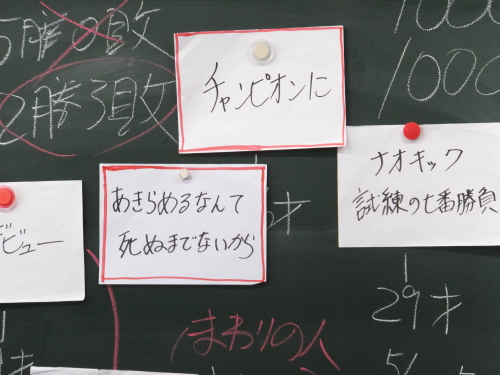 5勝0敗
2勝3敗
チャンピオンに
1000
1000
ナオキック
試練の七番勝負
あきらめるなんて
死ぬまでないから
ビュー
才
29才
まわりの人